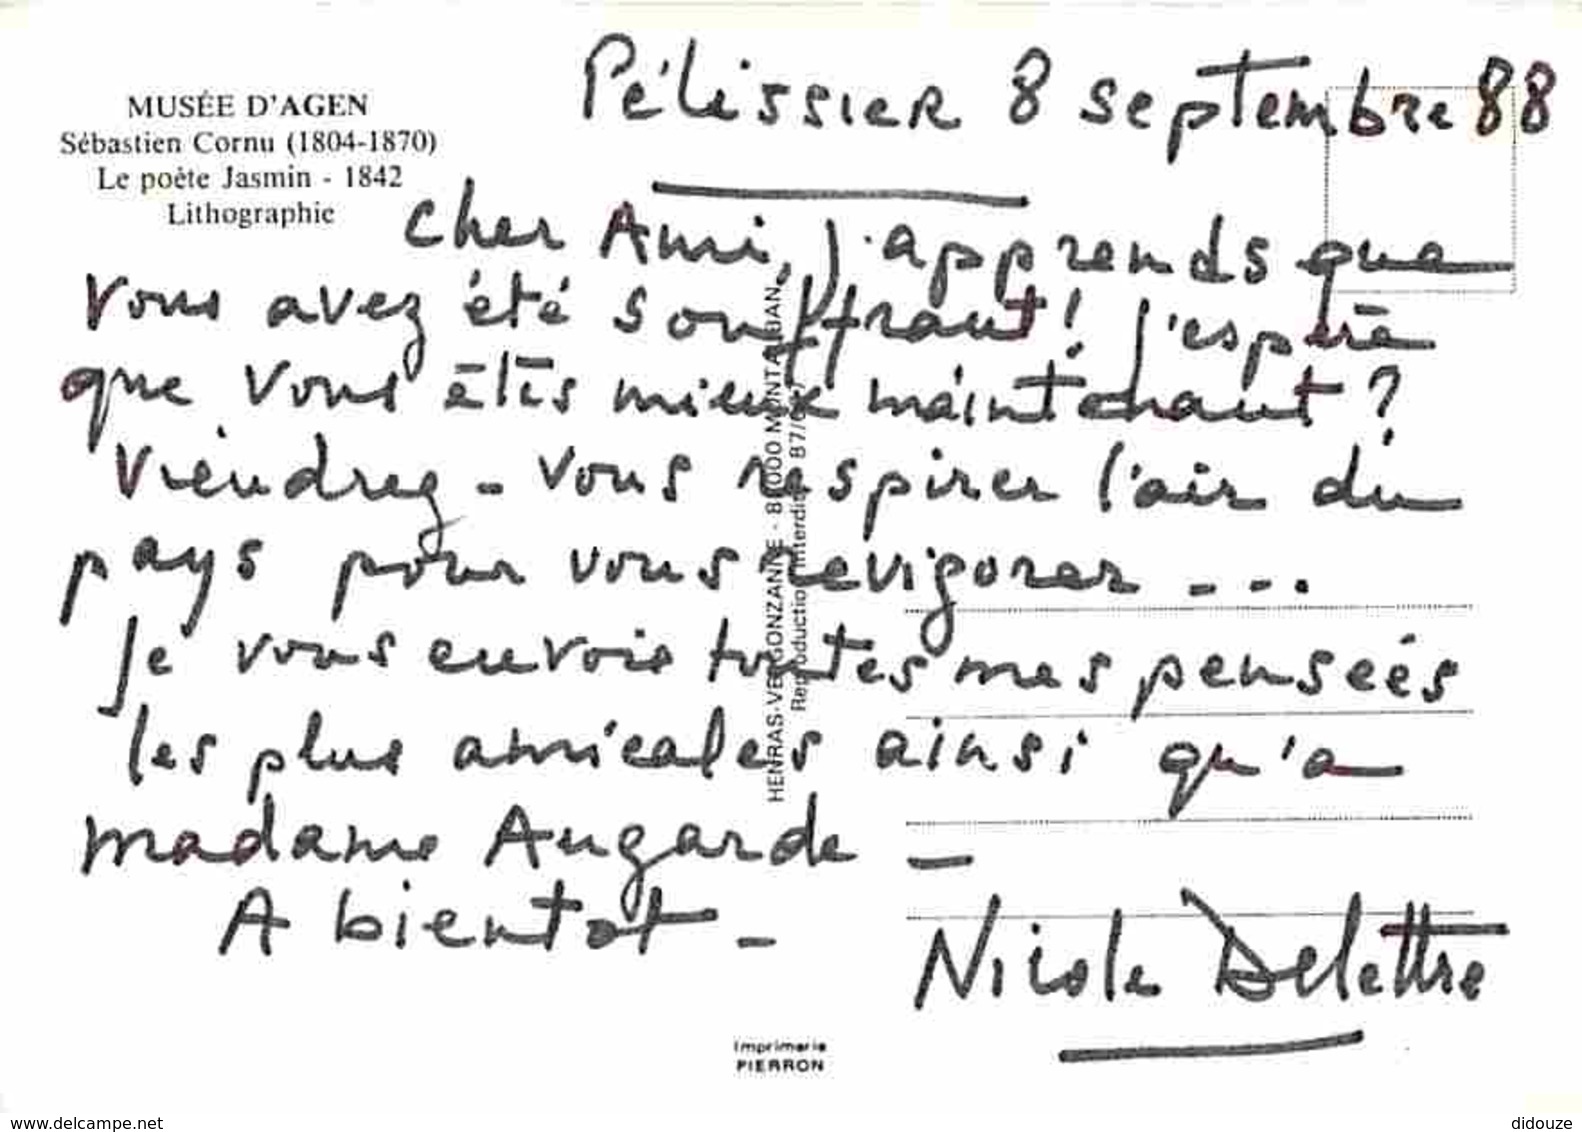 MUSÉE D'AGEN
Sébastien Cornu (1804-1870)
Le poète Jasmin - 1842
Lithographie
Pélissier 8 septembre 88
Cher Ami, j'apprends que
vous avez été souffrant! J'espère
que vous êtes mieux maintenant?
Viendrez-vous respirer l'air du
pays pour vous revigorer ...
Je vous envoie toutes mes pensées
les plus amicales ainsi qu'a
madame Augarde –
A bientot –
Nicole Delettre
HENRAS-VERGONZANNE - 82000 MONTAUBAN
Reproduction interdite 87/
Imprimerie
PIERRON
www.delcampe.net
didouze